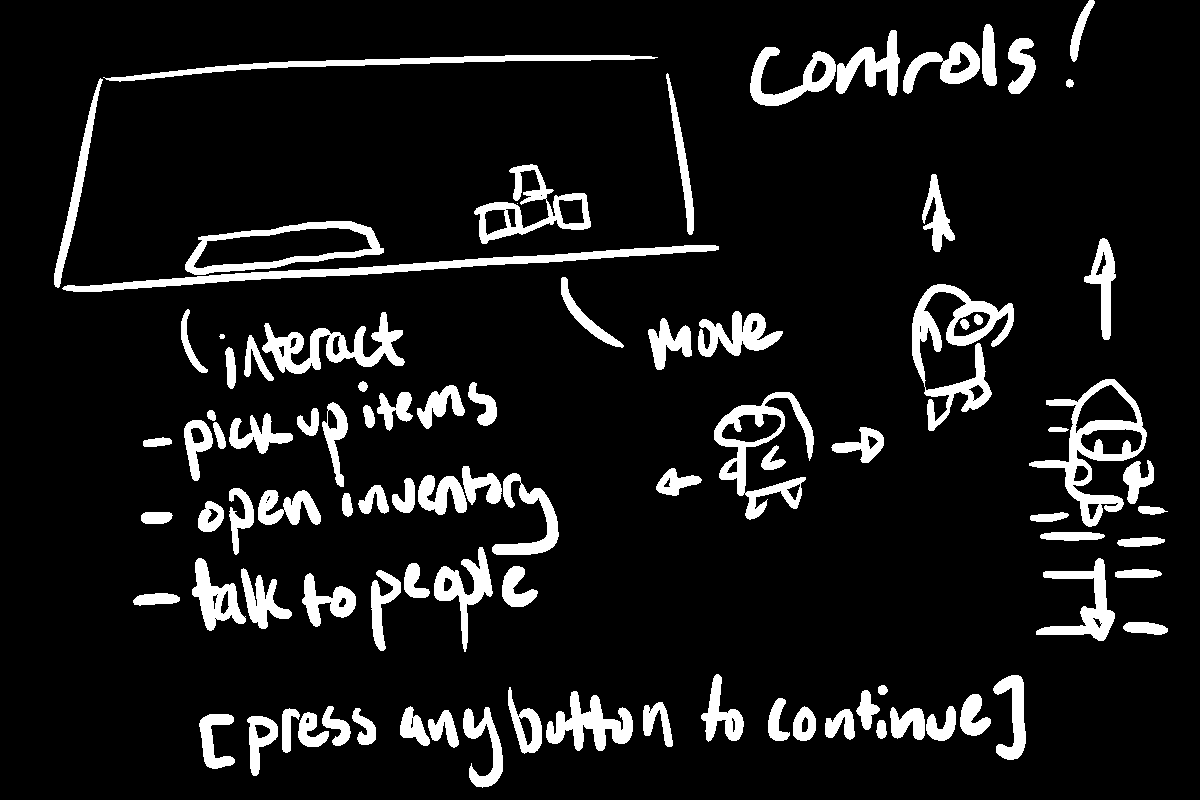 controls!
interact
move
- pick up items
- open inventory
- talk to people
[press any button to continue]